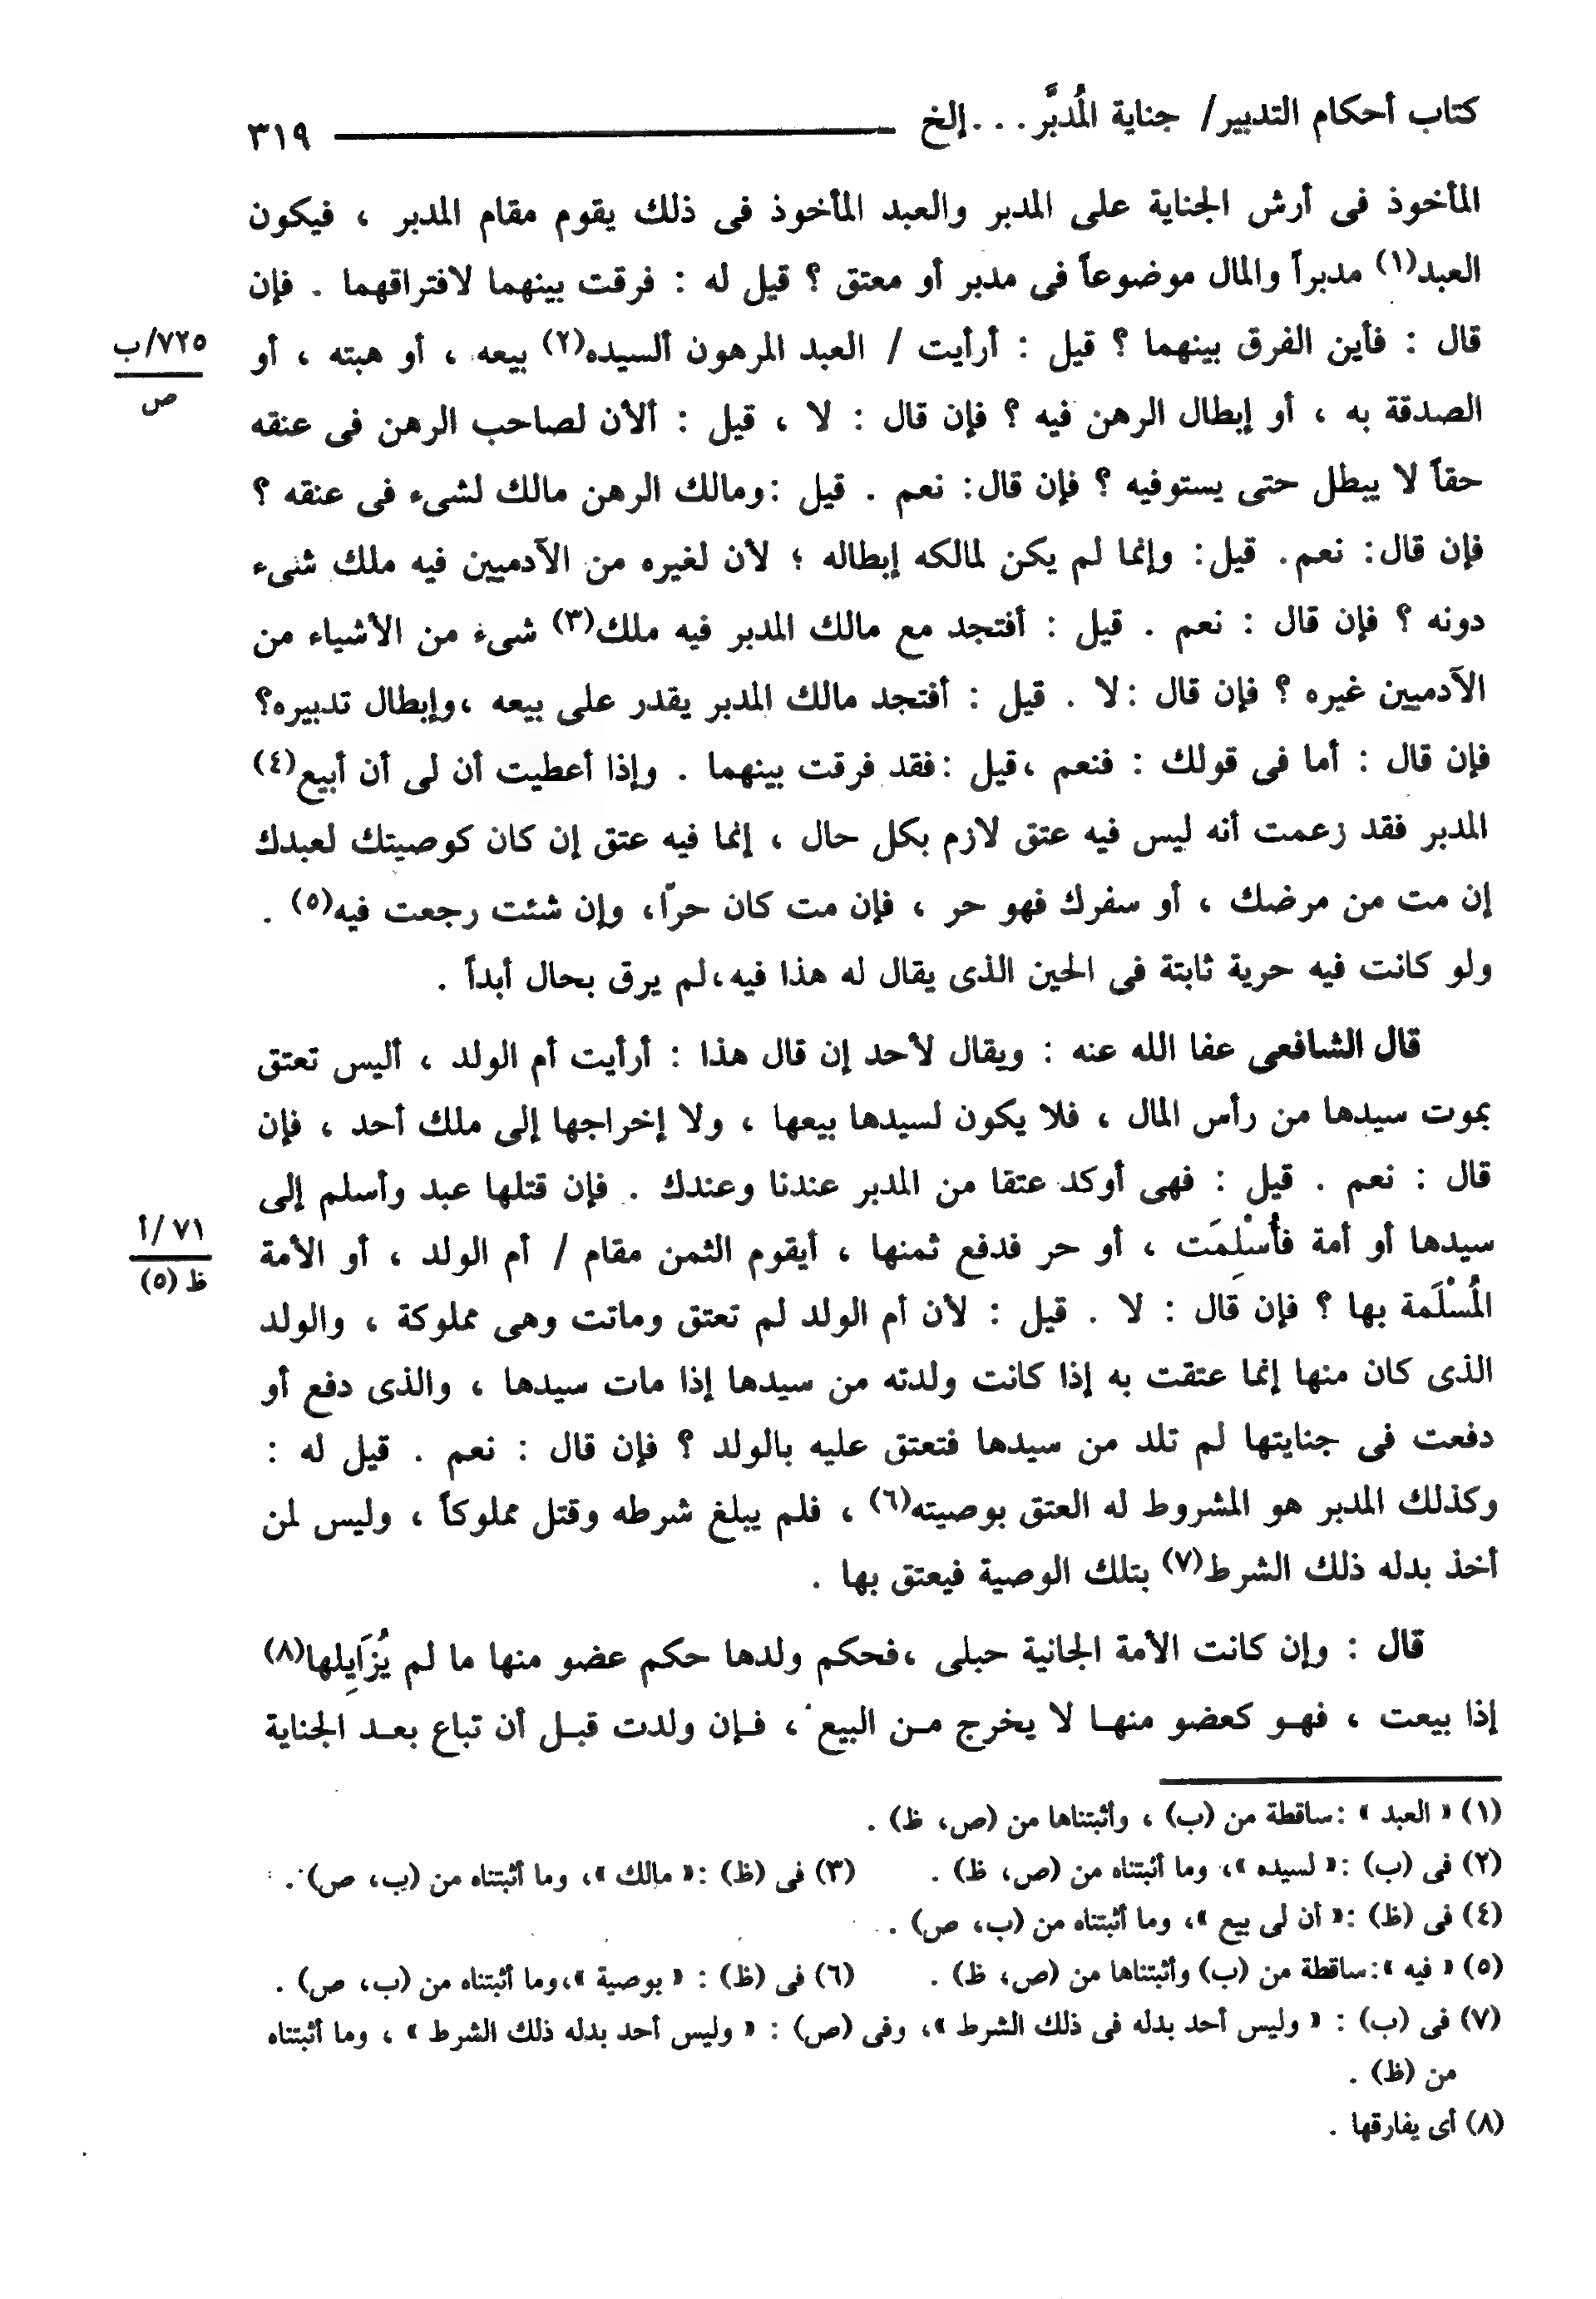 كتاب أحكام التدبير/ جناية المُدبَّر...إلخ ٣١٩
المأخوذ فى أرش الجناية على المدبر والعبد المأخوذ فى ذلك يقوم مقام المدبر ، فيكون
العبد(١) مدبراً والمال موضوعاً فى مدبر أو معتق ؟ قيل له : فرقت بينهما لافتراقهما . فإن
قال : فأين الفرق بينهما ؟ قيل : أرأيت / العبد المرهون ألسيده(٢) بيعه ، أو هبته ، أو
٧٢٥/ب
ص
الصدقة به ، أو إبطال الرهن فيه ؟ فإن قال : لا ، قيل : ألأن لصاحب الرهن فى عنقه
حقاً لا يبطل حتى يستوفيه ؟ فإن قال: نعم . قيل :ومالك الرهن مالك لشىء فى عنقه ؟
فإن قال: نعم. قيل: وإنما لم يكن لمالكه إبطاله ؛ لأن لغيره من الآدميين فيه ملك شىء
دونه ؟ فإن قال : نعم . قيل : أفتجد مع مالك المدبر فيه ملك(٣) شىء من الأشياء من
الآدميين غيره ؟ فإن قال :لا . قيل : أفتجد مالك المدبر يقدر على بيعه ،وإبطال تدبيره؟
فإن قال : أما فى قولك : فنعم ،قيل :فقد فرقت بينهما . وإذا أعطيت أن لى أن أبيع(٤)
المدبر فقد زعمت أنه ليس فيه عتق لازم بكل حال ، إنما فيه عتق إن كان كوصيتك لعبدك
إن مت من مرضك ، أو سفرك فهو حر ، فإن مت كان حرّا، وإن شئت رجعت فيه(٥) .
ولو كانت فيه حرية ثابتة فى الحين الذى يقال له هذا فيه،لم يرق بحال أبداً .
قال الشافعى عفا الله عنه : ويقال لأحد إن قال هذا : أرأيت أم الولد ، أليس تعتق
بموت سيدها من رأس المال ، فلا يكون لسيدها بيعها ، ولا إخراجها إلى ملك أحد ، فإن
قال : نعم . قيل : فهى أوكد عتقا من المدبر عندنا وعندك . فإن قتلها عبد وأسلم إلى
سيدها أو أمة فأُسْلِمَت ، أو حر فدفع ثمنها ، أيقوم الثمن مقام / أم الولد ، أو الأمة
٧١/أ
ظ (٥)
المُسْلَمة بها ؟ فإن قال : لا . قيل : لأن أم الولد لم تعتق وماتت وهى مملوكة ، والولد
الذى كان منها إنما عتقت به إذا كانت ولدته من سيدها إذا مات سيدها ، والذى دفع أو
دفعت فى جنايتها لم تلد من سيدها فتعتق عليه بالولد ؟ فإن قال : نعم . قيل له :
وكذلك المدبر هو المشروط له العتق بوصيته(٦) ، فلم يبلغ شرطه وقتل مملوكاً ، وليس لمن
أخذ بدله ذلك الشرط(٧) بتلك الوصية فيعتق بها .
قال : وإن كانت الأمة الجانية حبلى ،فحكم ولدها حكم عضو منها ما لم يُزَايِلها(٨)
إذا بيعت ، فهو كعضو منها لا يخرج من البيع ، فإن ولدت قبل أن تباع بعد الجناية
(١) « العبد » :ساقطة من (ب) ، وأثبتناها من (ص، ظ) .
(٢) فى (ب) :« لسيده »، وما أثبتناه من (ص، ظ) . (٣) فى (ظ) :« مالك »، وما أثبتناه من (ب، ص) .
(٤) فى (ظ) :« أن لى بيع »، وما أثبتناه من (ب، ص) .
(٥) « فيه »:ساقطة من (ب) وأثبتناها من (ص، ظ) . (٦) فى (ظ) : « بوصية »،وما أثبتناه من (ب، ص) .
(٧) فى (ب) : « وليس أحد بدله فى ذلك الشرط »، وفى (ص) : « وليس أحد بدله ذلك الشرط » ، وما أثبتناه
من (ظ) .
(٨) أى يفارقها .